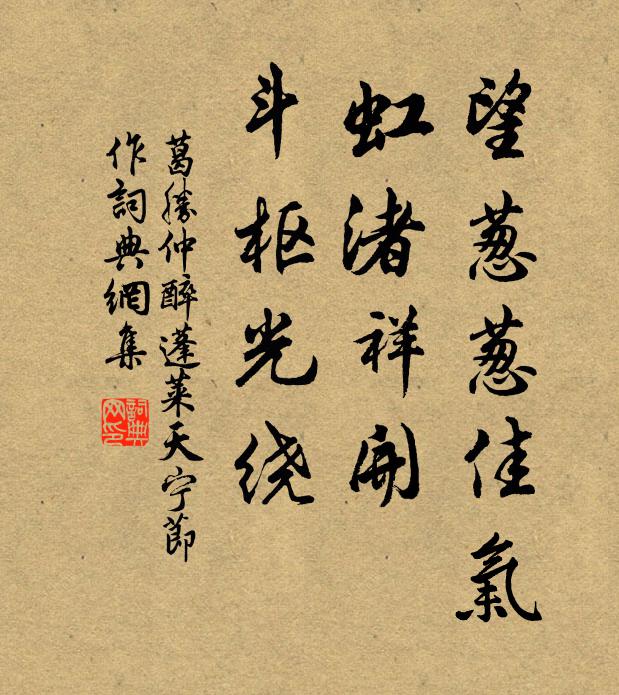 望葱葱佳氣
虹渚祥開
斗枢光绕
葛勝仲醉蓬萊天宁節
作詞典網集
詞典
网印